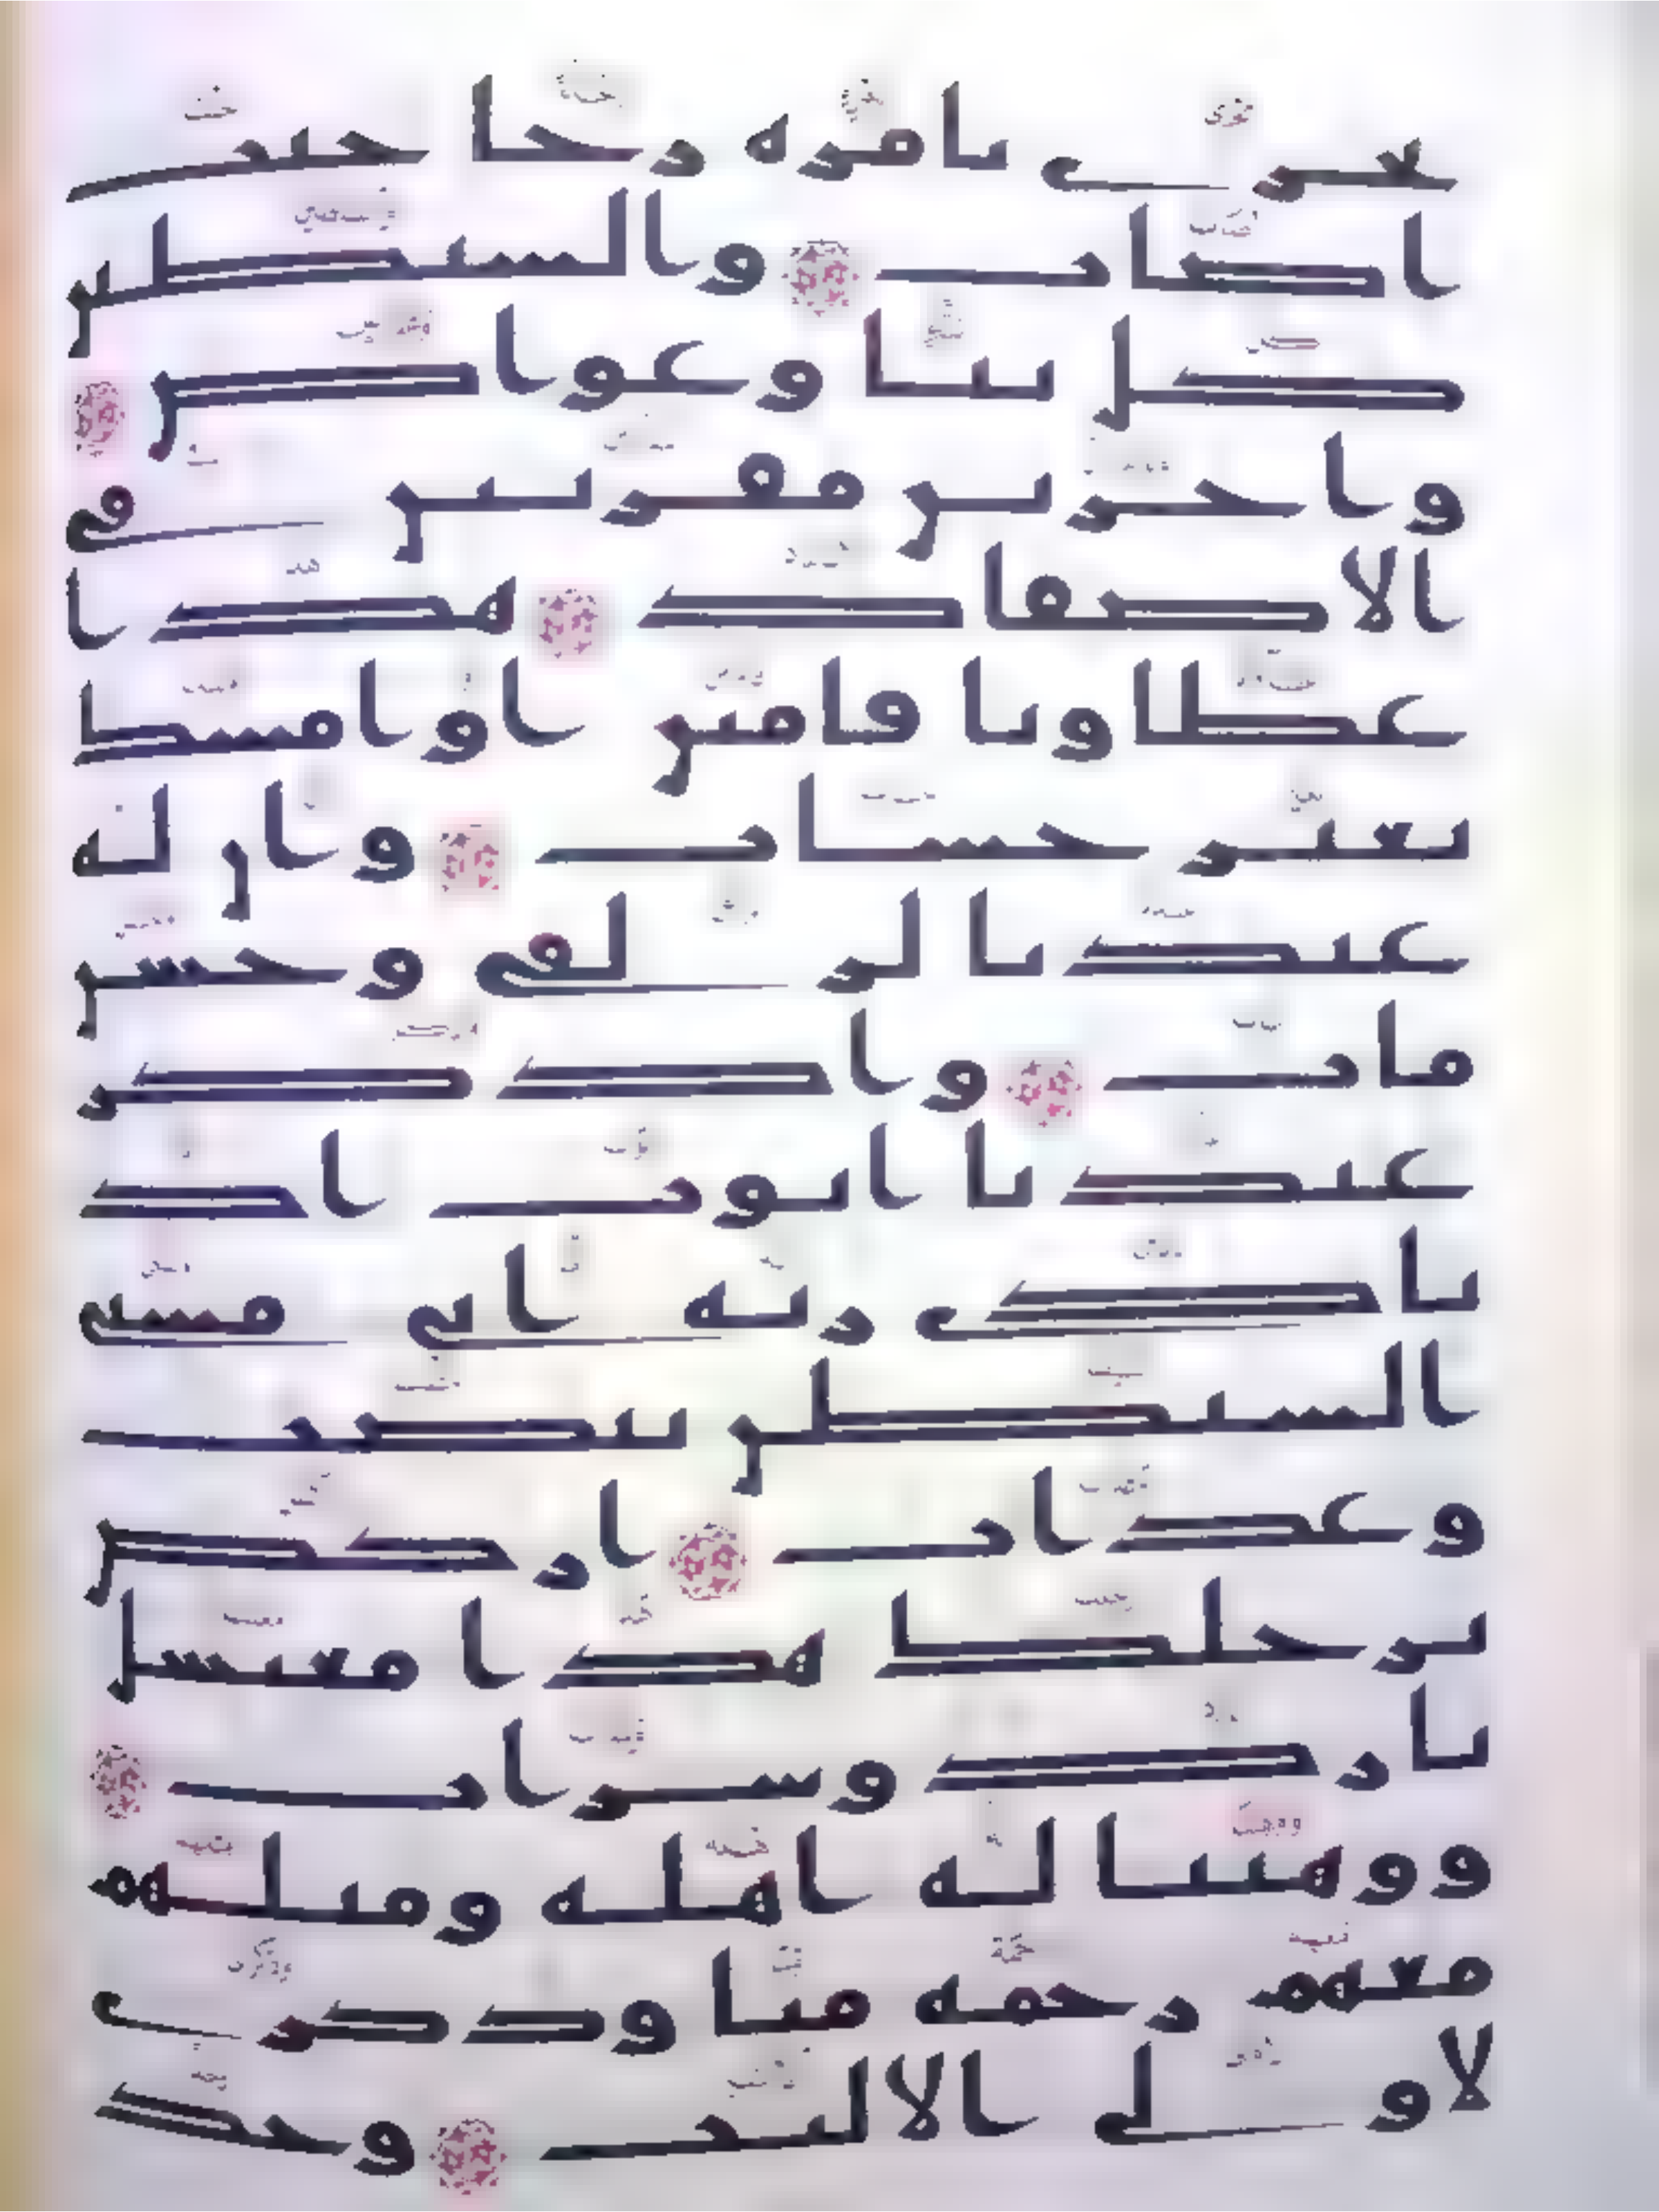 تجرى بامره رخا حيث
اصاب والشيطين
كل بنا وغواص
واخرين مقرنين فى
الاصفاد هذا
عطاونا فامنن او امسك
بغير حساب وان له
عندنا لزلفى وحسن
ماب واذكر
عبدنا ايوب اذ
نادى ربه انى مسنى
الشيطن بنصب
وعذاب اركض
برجلك هذا مغتسل
بارد وشراب
ووهبنا له اهله ومثلهم
معهم رحمه منا وذكرى
لاولى الالبب وخذ